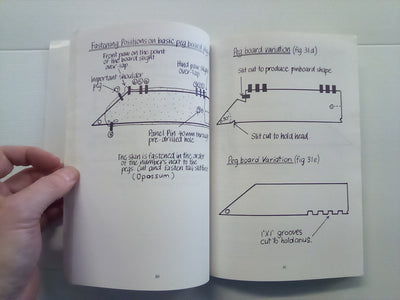 Fastening Positions on basic peg board
Front paw on the point
of the board slight
over-lap
Hind paw slight
over-lap.
Important shoulder
peg
Panel Pin 40mm through
pre-drilled hole
The skin is fastened in the order
of the numbers next to the
pegs
(Opossum)
Peg board Variation (fig 31d)
Slit cut to produce pinboard shape
30°
Slit cut to hold head.
Peg board Variation (fig 31e)
1"x1" grooves
cut to hold anus.